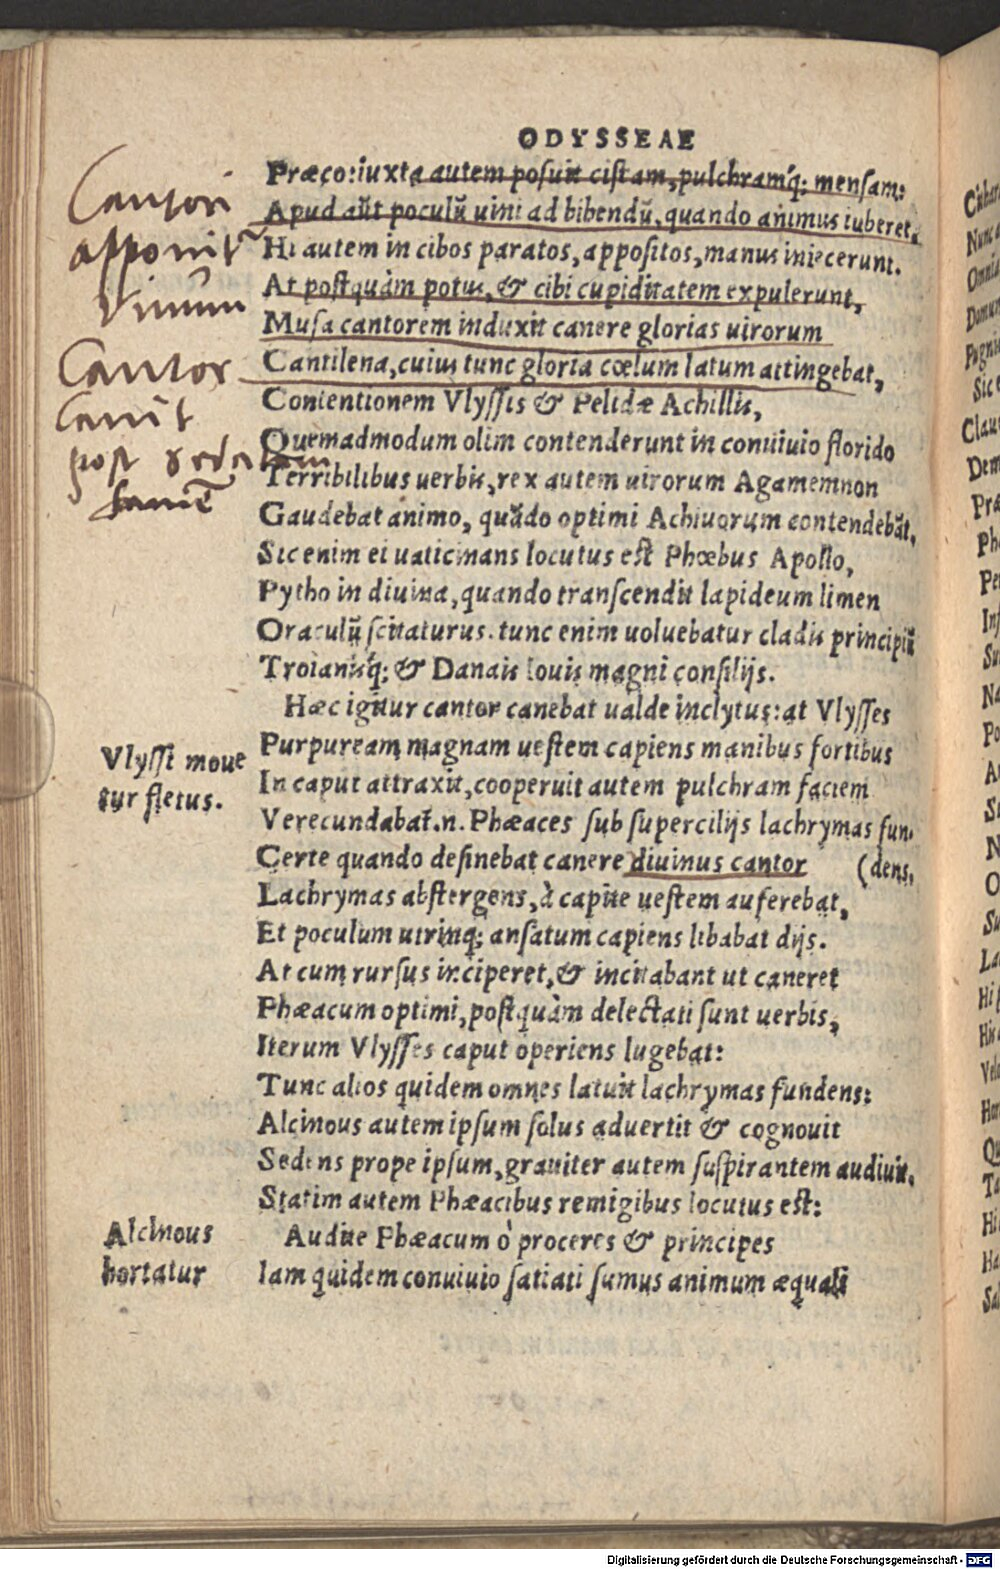 ODYSSEAE
Præco: iuxta autem posuit cistam, pulchramq́; mensam:
Apud aũt poculũ uini ad bibendũ, quando animus iuberet.
Hi autem in cibos paratos, appositos, manus iniecerunt.
At postquàm potus, & cibi cupiditatem expulerunt,
Musa cantorem induxit canere glorias uirorum
Cantilena, cuius tunc gloria cœlum latum attingebat,
Contentionem Vlyssis & Pelidæ Achillis,
Quemadmodum olim contenderunt in conuiuio florido
Terribilibus uerbis, rex autem uirorum Agamemnon
Gaudebat animo, quãdo optimi Achiuorum contendebãt,
Sic enim ei uaticinans locutus est Phœbus Apollo,
Pytho in diuina, quando transcendit lapideum limen
Oraculũ scitaturus. tunc enim uoluebatur cladis principiũ
Troianisq́; & Danais Iouis magni consilijs.
Hæc igitur cantor canebat ualde inclytus: at Vlysses
Purpuream magnam uestem capiens manibus fortibus
In caput attraxit, cooperuit autem pulchram faciem
Verecundabat̃.n. Phæaces sub supercilijs lachrymas fun-
Certe quando desinebat canere diuinus cantor (dens,
Lachrymas abstergens, à capite uestem auferebat,
Et poculum utrinq; ansatum capiens libabat dijs.
At cum rursus inciperet, & incitabant ut caneret
Phæacum optimi, postquàm delectati sunt uerbis,
Iterum Vlysses caput operiens lugebat:
Tunc alios quidem omnes latuit lachrymas fundens:
Alcinous autem ipsum solus aduertit & cognouit
Sedens prope ipsum, grauiter autem suspirantem audiuit.
Statim autem Phæacibus remigibus locutus est:
Audite Phæacum ò proceres & principes
Iam quidem conuiuio satiati sumus animum æquali
Cantori
apponit̃
vinum
Cantor
canit
post sedatam
famẽ
Vlyssi moue
tur fletus.
Alcinous
hortatur
Digitalisierung gefördert durch die Deutsche Forschungsgemeinschaft - DFG